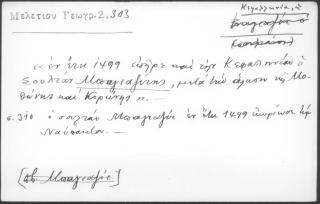 Μελετίου Γεωγρ. 2, 303
Κεφαλληνία, ἡ
«ἐν ἔτει 1499 εἷλε καὶ τὴν Κεφαλληνίαν ὁ
Σουλτὰν Μπαγιαζίτης, μετὰ τὴν ἅλωσιν τῆς Με-
θώνης καὶ Κορώνης».—
σ. 310 ὁ σουλτὰν Μπαγιαζὶτ ἐν ἔτει 1499 ἐκυρίευσε τὴν
Ναύπακτον.—